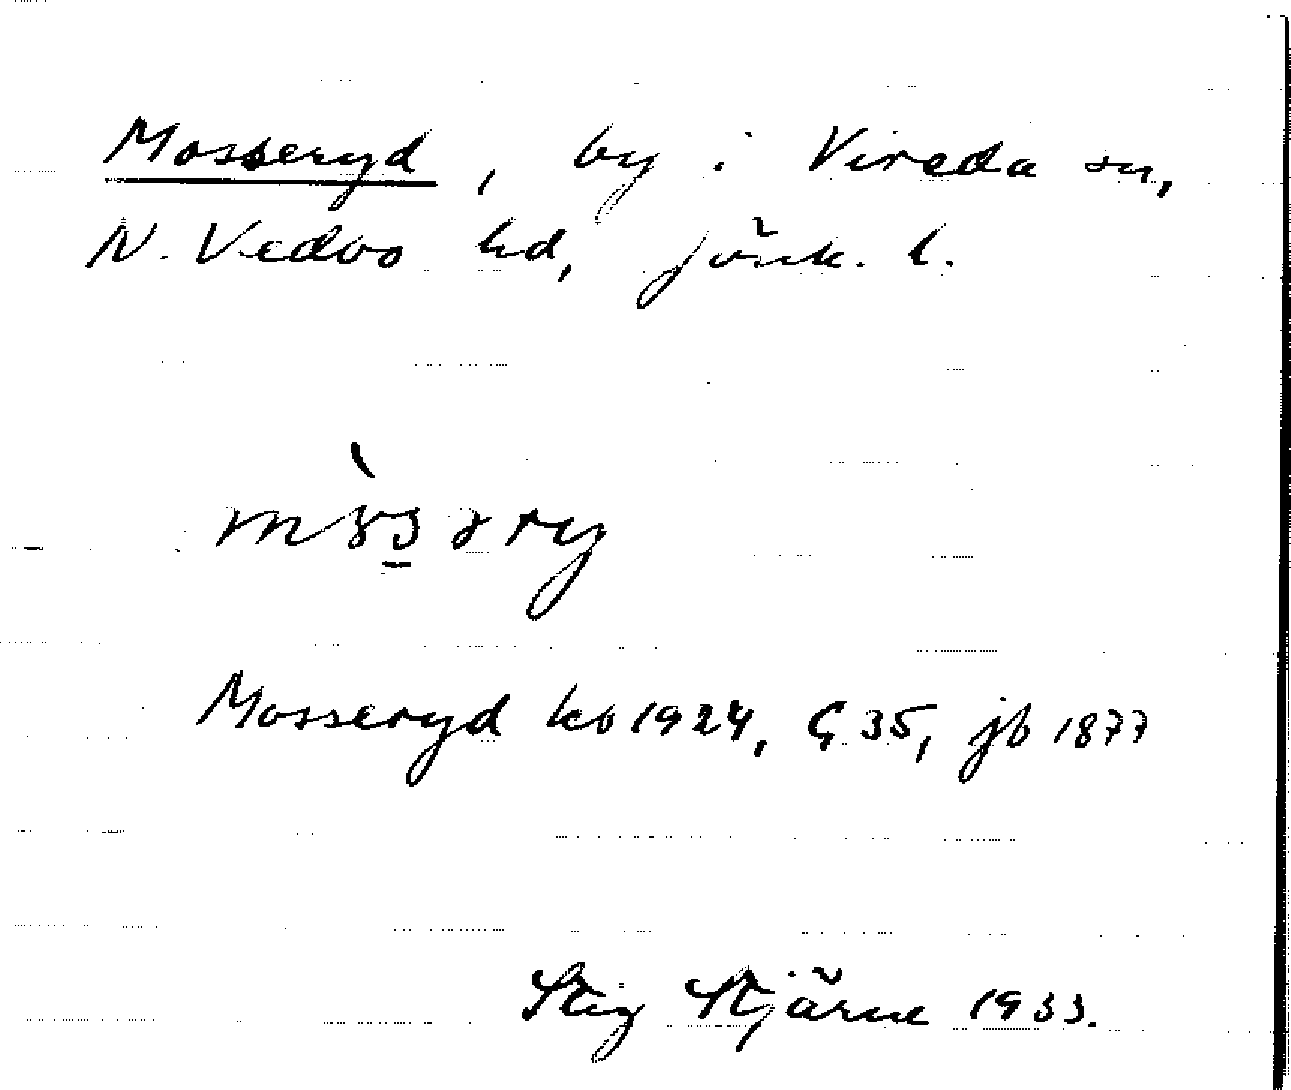 Mosseryd, by i Vireda sn,
N. Vedbo hd, Jönk. l.
Mosseryd kb 1924, G 35, jb 1877
Stig Stjärne 1933.